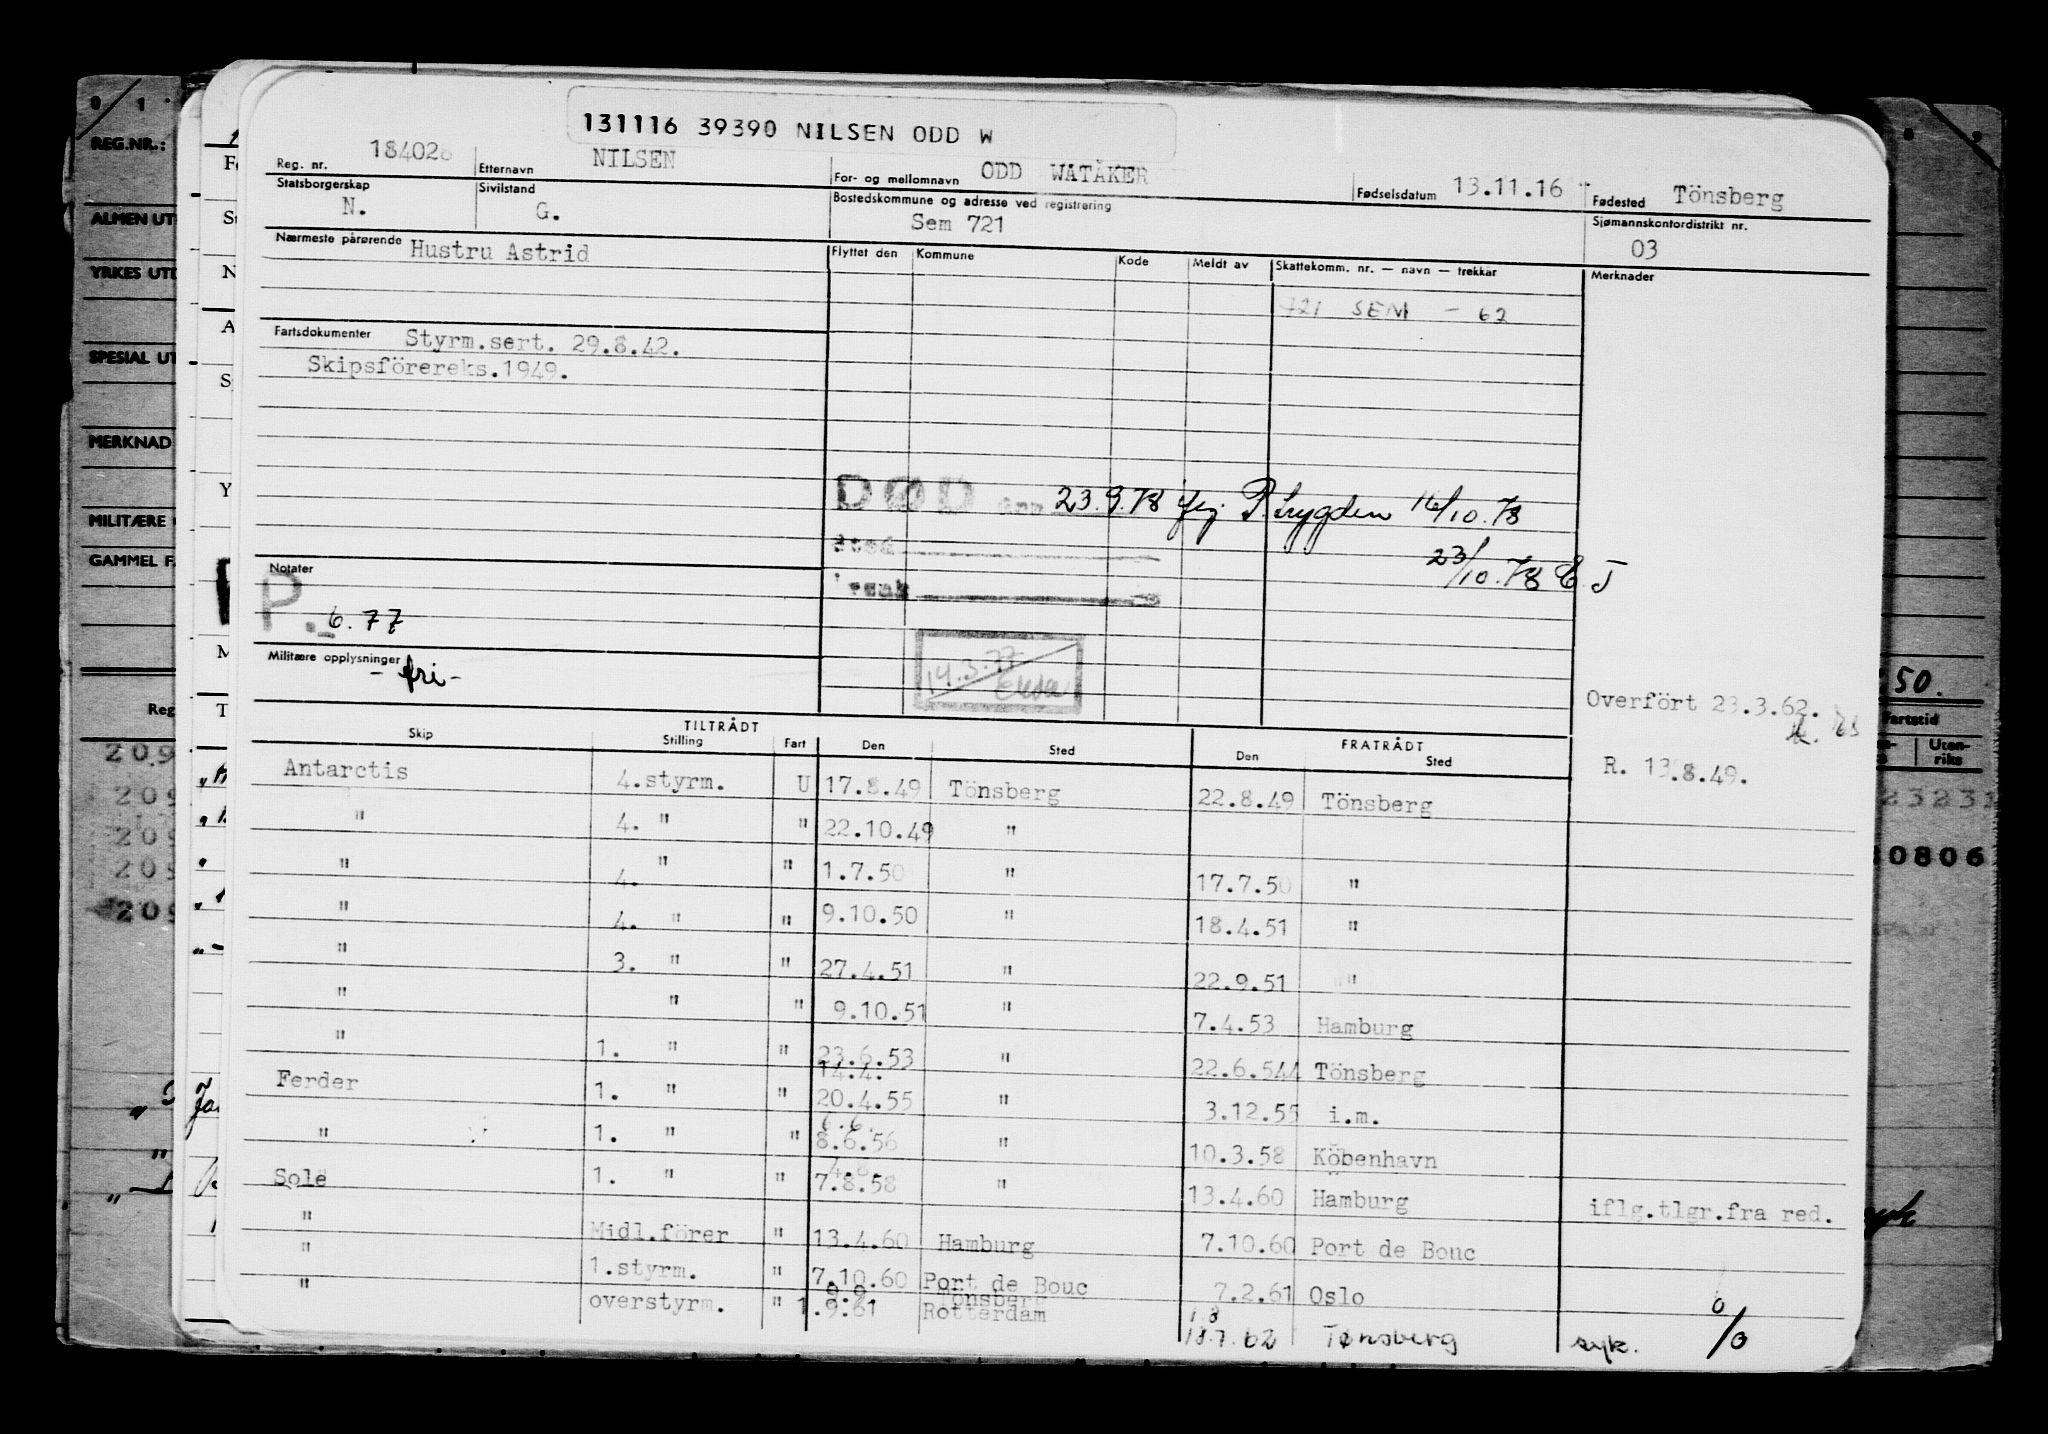 131116 39390 NILSEN ODD W
Reg. nr. 184028 Etternavn NILSEN For- og mellomnavn ODD WATÅKER Fødselsdatum 13.11.16 Fødested Tönsberg
Statsborgerskap N. Sivilstand G. Bostedskommune og adresse ved registrering Sem 721 Sjømannskontordistrikt nr. 03
Nærmeste pårørende Hustru Astrid Flyttet den Kommune Kode Meldt av Skattekomm. nr. — navn — trekkår Merknader
721 SEM - 62
Fartsdokumenter Styrm.sert. 29.8.42.
Skipsförereks.1949.
DØD den 23.9.78 P. Trygden 16/10.78
Sted
23/10.78 E J
Notater
P. 6.77
Militære opplysninger - fri -
14.3.77
Overfört 23.3.62.
R. 13.8.49.
TILTRÅDT FRATRÅDT
Skip Stilling Fart Den Sted Den Sted
Antarctis 4.styrm. U 17.8.49 Tönsberg 22.8.49 Tönsberg
" 4. " " 22.10.49 "
" 4. " " 1.7.50 " 17.7.50 "
" 4. " " 9.10.50 " 18.4.51 "
" 3. " " 27.4.51 " 22.9.51 "
" " " 9.10.51 " 7.4.53 Hamburg
" 1. " " 23.6.53 " 22.6.544 Tönsberg
14.4.
Ferder 1. " " 20.4.55 " 3.12.55 i.m.
6.6.
" 1. " " 8.6.56 " 10.3.58 Köbenhavn
4.8.
Sole 1. " " 7.8.58 " 13.4.60 Hamburg iflg.tlgr.fra red.
" Midl.förer " 13.4.60 Hamburg 7.10.60 Port de Bouc
" 1.styrm. " 7.10.60 Port de Bouc 7.2.61 Oslo
9.9. Tönsberg
" overstyrm. " 1.9.61 Rotterdam 18.7.62 Tønsberg syk. %
REG.NR.:
ALMEN UT
YRKES UTD
SPESIAL UT
MERKNAD
MILITÆRE
GAMMEL F
50.
Fartstid
Uten-
riks
23231
0806